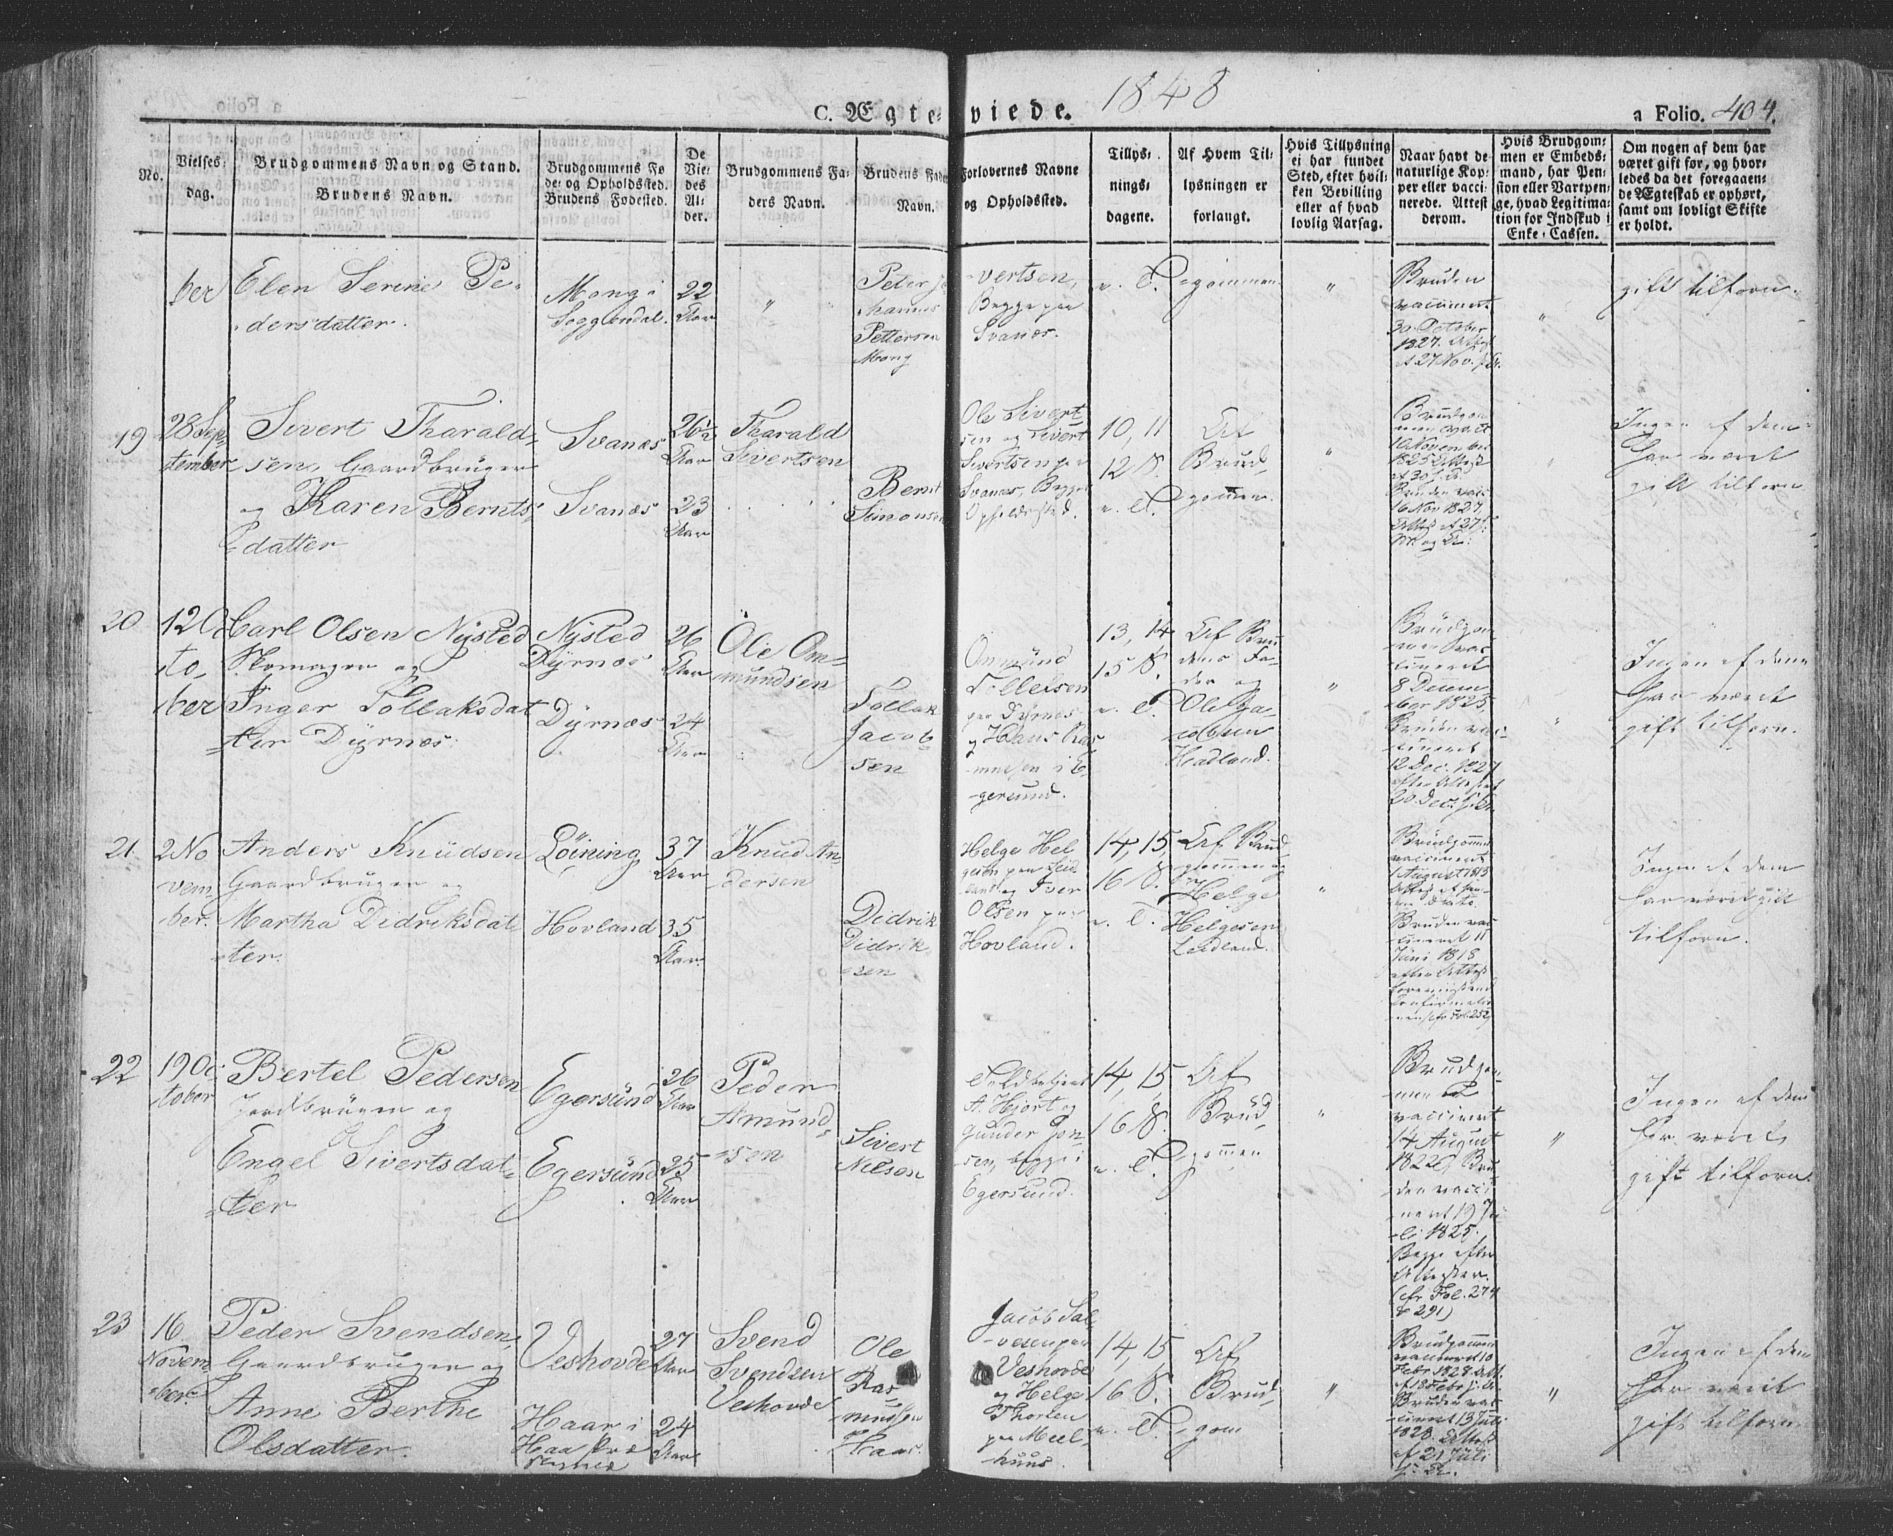 1848
C. Ægteviede.
a Folio. 404.
No.
Vielses-
dag.
Brudgommens Navn og Stand.
Brudens Navn.
Brudgommens Fø
de- og Opholdssted.
Brudens Fødested.
De
Vie-
des
Al-
der.
Brudgommens Fa-
ders Navn.
Brudens Faders
Navn.
Forlovernes Navne
og Opholdssted.
Tillys-
nings-
dagene.
Af Hvem Til-
lysningen er
forlangt.
Hvis Tillysning
ei har fundet
Sted, efter hvil-
ken Bevilling
eller af hvad
lovlig Aarsag.
Naar havt de
naturlige Kop-
per eller vacci-
nerede. Attest
derom.
Hvis Brudgom-
men er Embeds-
mand, har Pen-
sion eller Vartpen-
ge, hvad Legitima-
tion for Indskud i
Enke-Cassen.
Om nogen af dem har
været gift før, og hvor-
ledes da det foregaaen-
de Ægteskab er ophørt,
samt om lovligt Skifte
er holdt.
ber
Elen Serine Pe-
dersdatter.
Mong i
Soggendal.
22
Aar
"
Peter Jo
hannes
Pettersen
Mong
-vertsen,
Begge paa
Svanæs.
e. T.
-gommen
"
Bruden
vaccineret
30 October
1827. Attest
af 27 Nov.
"
gift tilforn.
19
28 Sep-
tember
Sivert Tharald-
sen, Gaardbruger
og Karen Bernts-
datter
Svanæs
Svanæs
26½
Aar
23
Aar
Tharald
Sivertsen
Bernt
Simonsen
Ole Sivert-
sen og Sivert
Sivertsen paa
Svanæs, Begges
Opholdssted.
10, 11
12 S.
e. T.
Af
Brud-
gommen.
"
Brudgom-
men vacc.
10 November
1825 Attest
af 30
Bruden vacc.
16 Nov 1827
Attest af 27
"
Ingen af dem
har været
gift tilforn
20
12 Oc
to-
ber
Carl Olsen Nysted
Skomager og
Inger Tollaksdat-
ter Dyrnæs.
Nysted
Dyrnæs
Dyrnæs
26
Aar
24
Aar
Ole Om-
mundsen
Tollak
Jacob-
sen
Ommund
Tollefsen
paa Dyrnæs
og Hans Ras-
mussen i E-
gersund.
13, 14
15 S.
e. T.
Af Bru-
dens Fa-
der og
Ole Ja-
cobsen
Headland.
"
Brudgom-
men vac-
cineret
8 Decem-
ber 1825.
Bruden vac-
cineret
12 Dec. 1827
efter Attest
20 Dec.
"
Ingen af dem
har været
gift tilforn.
21.
2 No
vem-
ber.
Anders Knudsen
Gaardbruger og
Martha Didriksdat-
ter.
Löining
Hovland
37
Aar
35
Aar.
Knud An-
dersen
Didrik
Didrik-
sen
Helge Hel
gesen paa Leid-
land og Iver
Olsen paa
Hovland.
14, 15
16 S.
e. T.
Af Brud-
gommen og
Helge
Helgesen
Leidland.
"
Brudgommen
vaccineret
August 1813
Bruden vac-
cineret 11
Juni 1818
efter Attest
Ingen af dem
har været gift
tilforn.
22
19 Oc-
tober
Bertel Pedersen
Jordbruger og
Engel Sivertsdat-
ter
Egersund
Egersund
26
Aar
25
Aar
Peder
Amund-
sen
Sivert
Nilsen
Toldbetjent
A. Hjort og
Gunder Jon-
sen, begge i
Egersund.
14, 15
16 S.
e. T.
Af
Brud-
gommen
"
Brudgom-
men
vaccineret
14 August
1822, Bru-
den vacci-
neret 19 Ju-
li 1825.
Begge efter
Attester.
(cfr Fol. 274
& 291)
"
Ingen af dem
har været
gift tilforn.
23
16
Novem-
ber.
Peder Svendsen,
Gaardbruger og
Anne Berthe
Olsdatter.
Veshovde
Haar i
Haa Præ
stegield
27
Aar
24
Aar
Svend
Svendsen
Veshovde
Ole
Ras-
mussen
Haar.
Jacob Sal-
vesen paa
Veshovde
og Helge
Thorsen
paa Meel-
huus.
14, 15
16 S.
e. T.
Af
Brud-
gom
"
Brudgommen
vaccineret 10
Febr 1828 Att.
af 18 Febr
Bruden vac-
cineret 13 Juli
1828. Attest
af 21 Juli
"
Ingen af dem
har været
gift tilforn